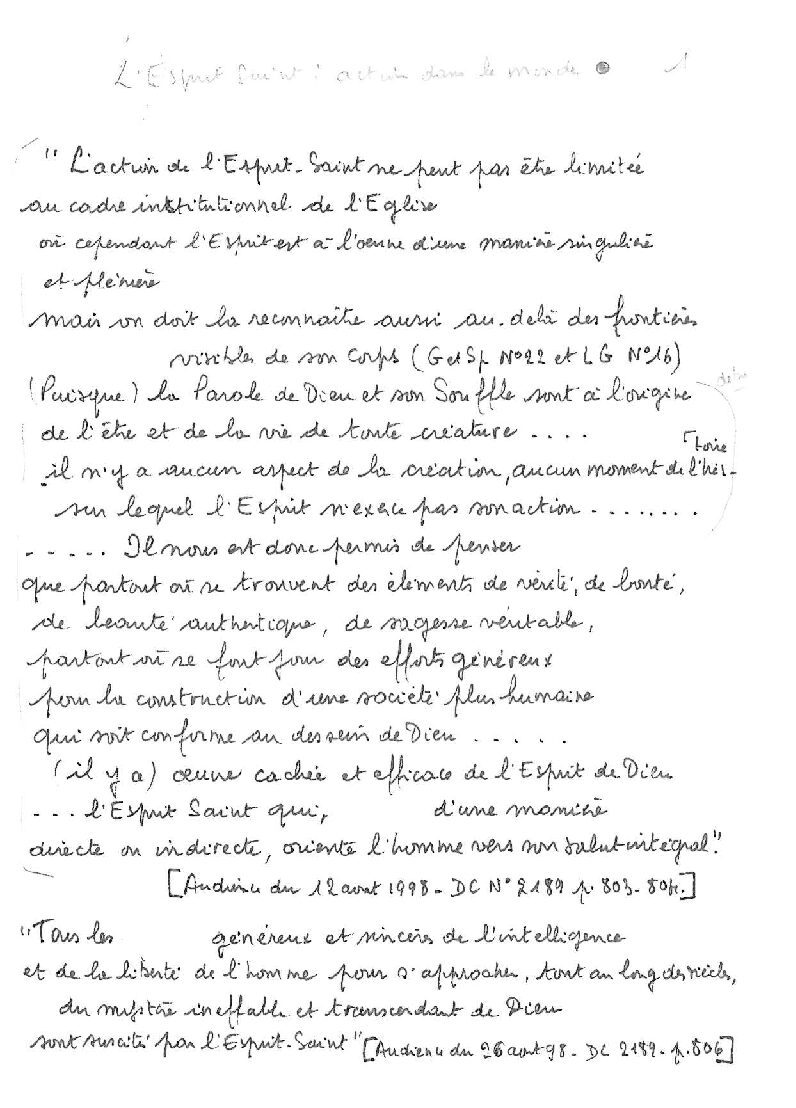 L'Esprit Saint : action dans le monde 1
" L'action de l'Esprit-Saint ne peut pas être limitée
au cadre institutionnel de l'Eglise
où cependant l'Esprit est à l'oeuvre d'une manière singulière
et plénière
mais on doit la reconnaître aussi au-delà des frontières
visibles de son Corps (G et Sp N°22 et LG N°16)
(Puisque) la Parole de Dieu et son Souffle sont à l'origine
de l'être et de la vie de toute créature ....
il n'y a aucun aspect de la création, aucun moment de l'his-
toire
sur lequel l'Esprit n'exerce pas son action ........
..... Il nous est donc permis de penser
que partout où se trouvent des éléments de vérité, de bonté,
de beauté authentique, de sagesse véritable,
partout où se font jour des efforts généreux
pour la construction d'une société plus humaine
qui soit conforme au dessein de Dieu .....
(il y a) œuvre cachée et efficace de l'Esprit de Dieu
... l'Esprit Saint qui, d'une manière
directe ou indirecte, oriente l'homme vers son salut intégral."
[Audience du 12 aout 1998 - DC N° 2189 p. 803-804.]
"Tous les généreux et sincères de l'intelligence
et de la liberté de l'homme pour s'approcher, tout au long des siècles,
du mystère ineffable et transcendant de Dieu
sont suscités par l'Esprit-Saint" [Audience du 26 aout 98 - DC 2189 - p. 806]